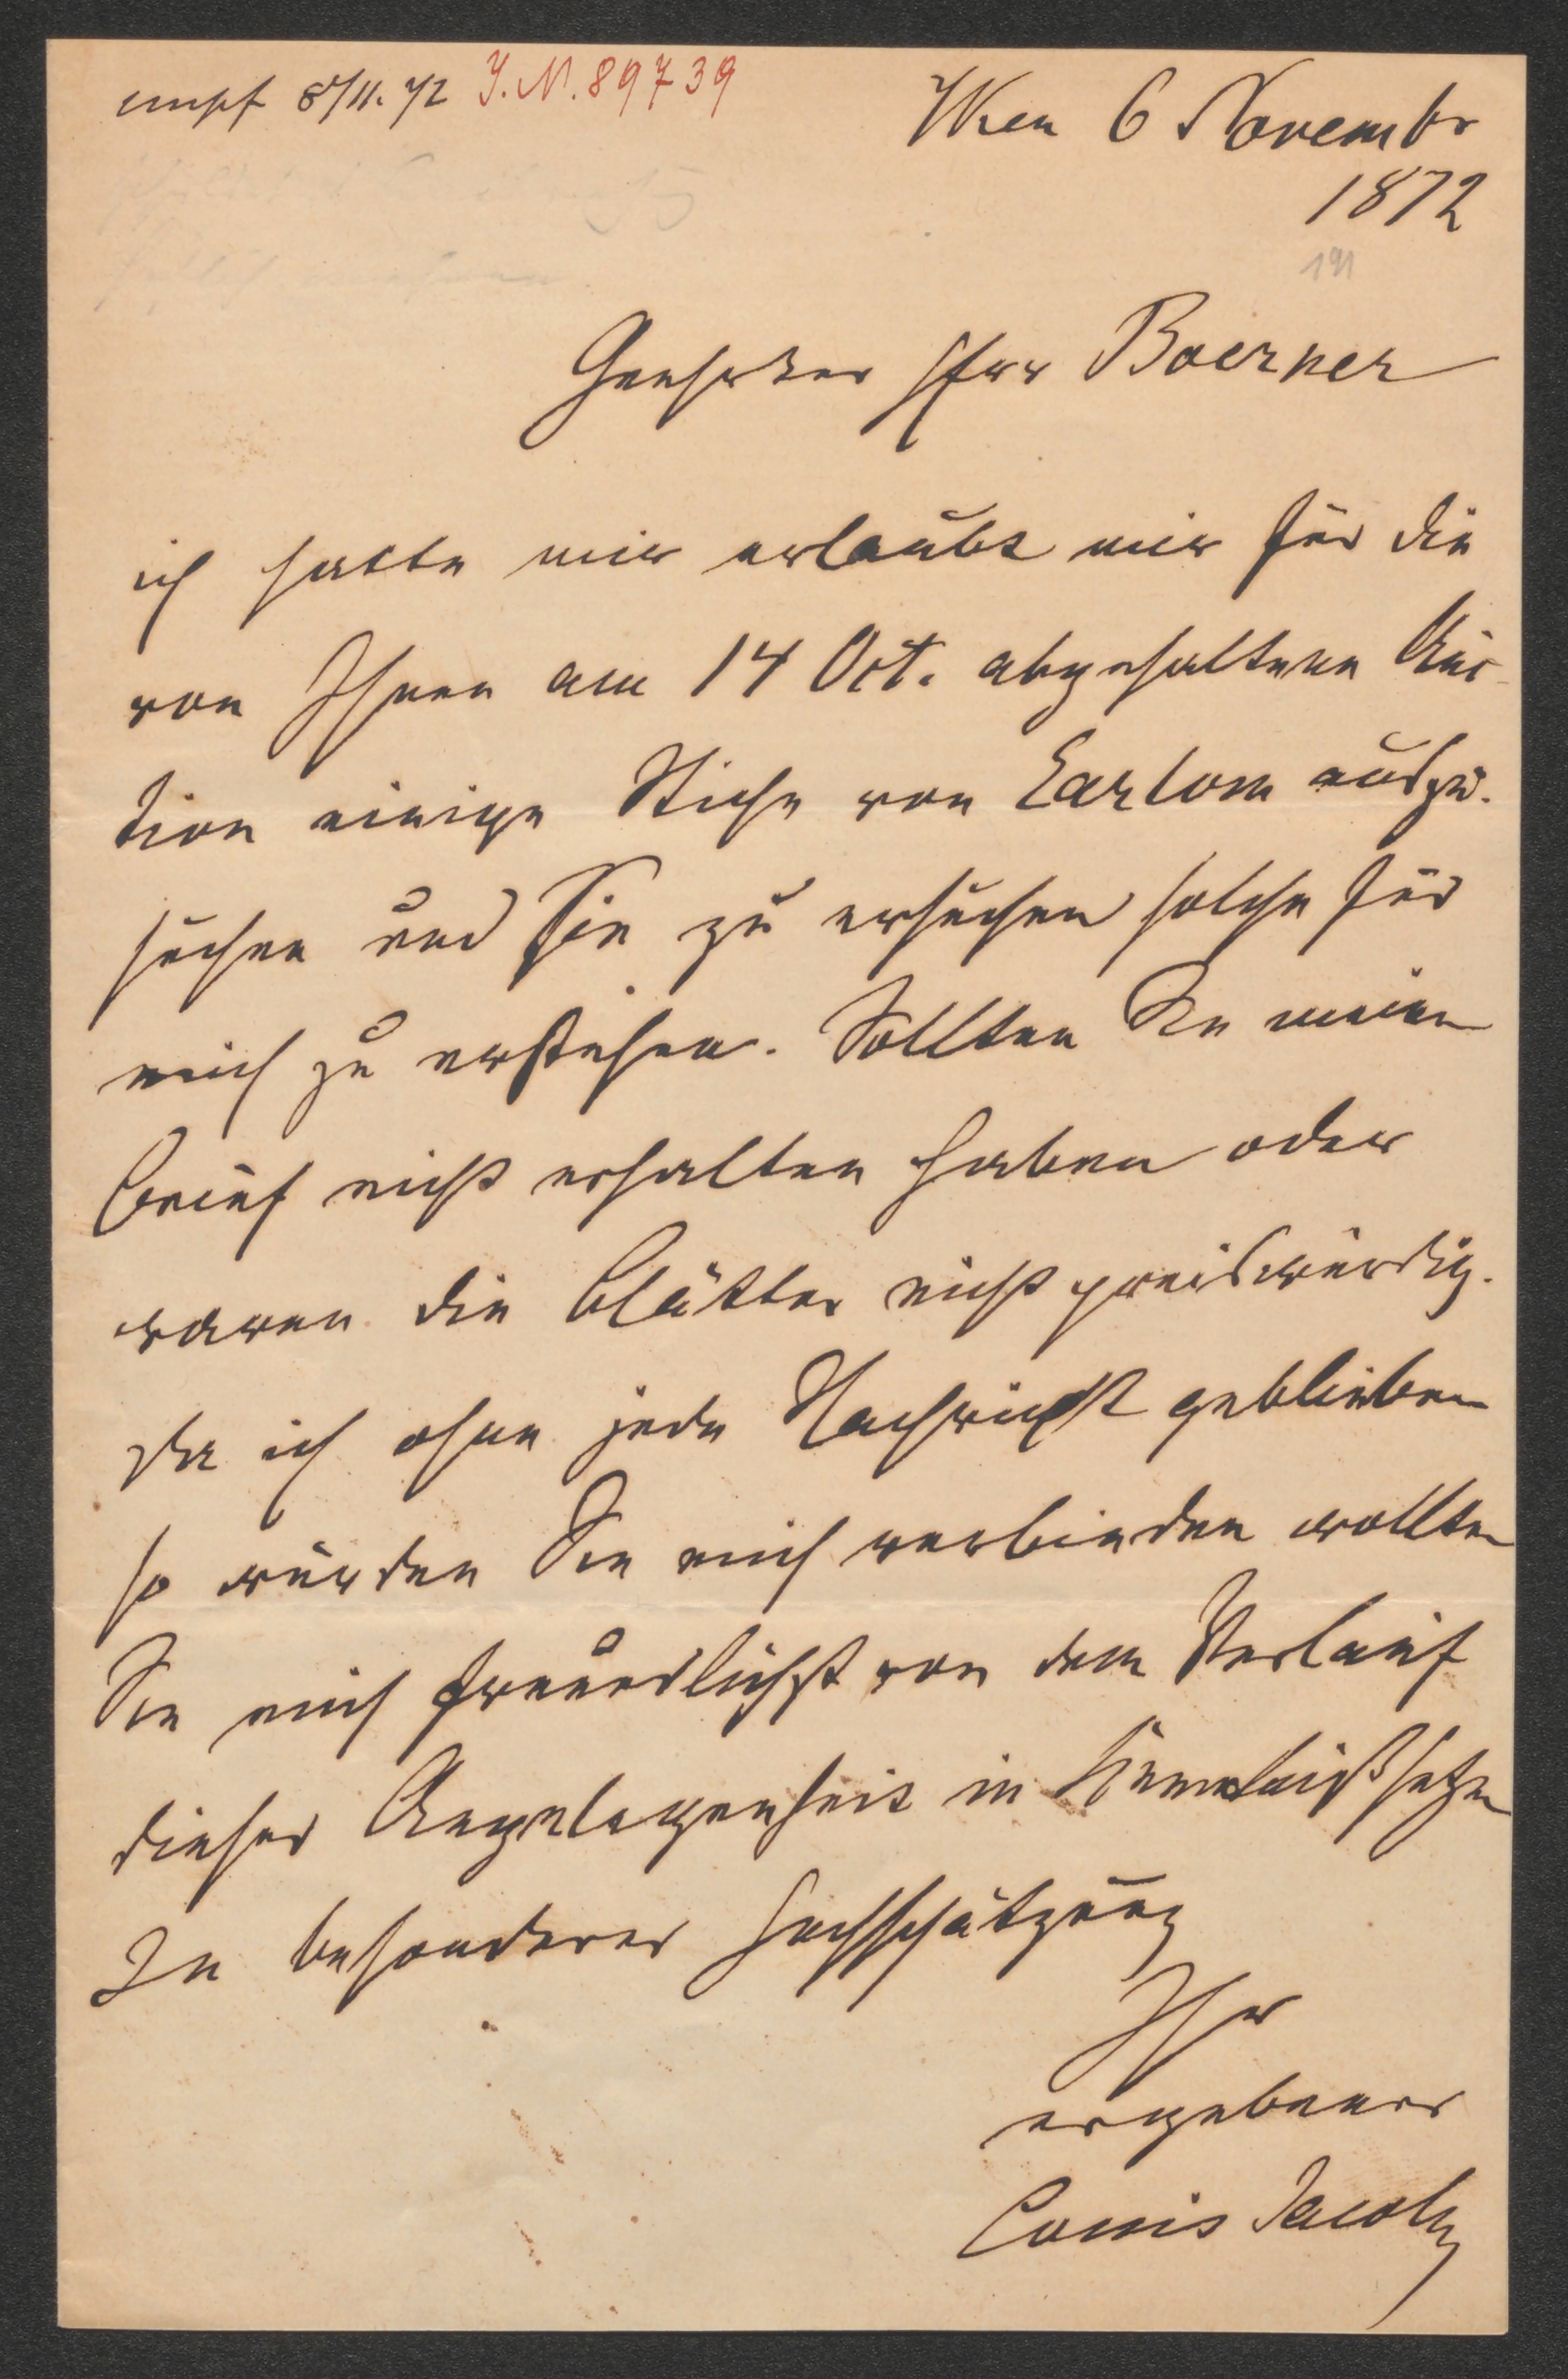 empf 8/11. 72 J.N. 89739
Wien 6 Novembr
1872
191
Geehrter Herr Boerner
ich hatte mir erlaubt mir für die
von Ihnen am 14 Oct. abgehaltene Auc-
tion einige Stiche von Earlom auszu-
suchen und Sie zu ersuchen solche für
mich zu erstehen. Sollten Sie meinen
Brief nicht erhalten haben oder
waren die Blätter nicht preiswürdig.
Da ich ohne jede Nachricht geblieben
so würden Sie mich verbinden wollten
Sie mich freundlichst von dem Verlauf
dieser Angelegenheit in Kenntniß setzen
In besonderer Hochschätzung
Ihr
ergebener
Louis Jacoby